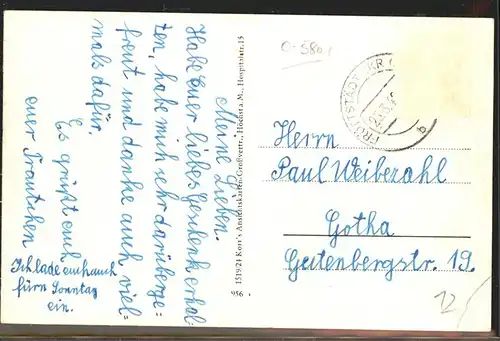 Meine Lieben.
Habe Euer liebes Geschenk erhal=
ten, habe mich sehr darüber ge=
freut und danke auch viel=
mals dafür.
Es grüßt euch
euer Trautchen
Ich lade euch auch
fürn Sonntag
ein.
1519/21 Korr's Ansichtskarten-Großvertr., Höchst a. M., Hospitalstr. 15
956
FRÖTTSTÄDT (KR
b
Herrn
Paul Weiberzahl
Gotha
Gutenbergstr. 19.
12